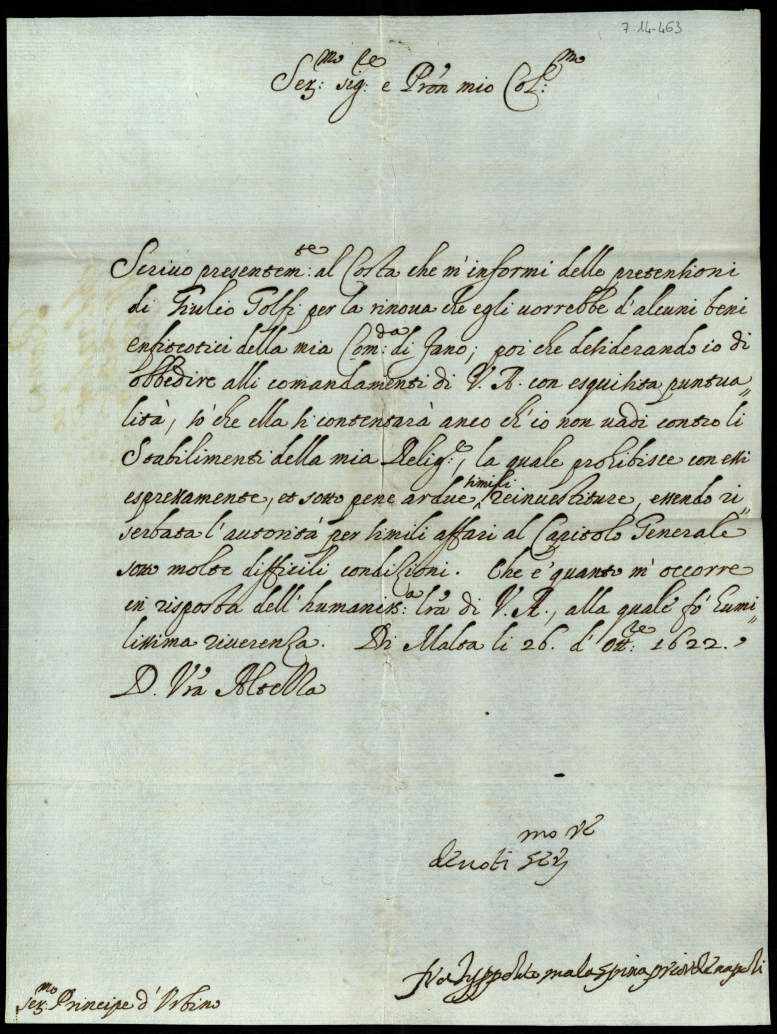 7-14-463
Ser:mo sig:re e Pron mio Col:mo
Scriuo presentem:te al Costa che m'informi delle pretensioni
di Giulio Golfi per la rinoua che egli uorrebbe d'alcuni beni
enfiteotici della mia Com:da di Fano; poi che desiderando io di
obbedire alli comandamenti di V. A. con esquisita puntua„
lità, sò che ella si contentarà anco ch'io non uadi contro li
Stabilimenti della mia Relig:e, la quale prohibisce con essi
espressamente, et sotto pene ardue simili reinuestiture, essendo ri„
serbata l'autorità per simili affari al Capitolo Generale
sotto molte difficili condizioni. Che è quanto m'occorre
in risposta dell'humaniss:a lrã di V. A., alla quale fò humi„
lissima riuerenza. Di Malta li 26. d'Ott:re 1622.
D. Vrã Altezza
deuoti mo ser re
fra Hyppolito malaspina prior di napoli
Ser:mo Principe d'Vrbino